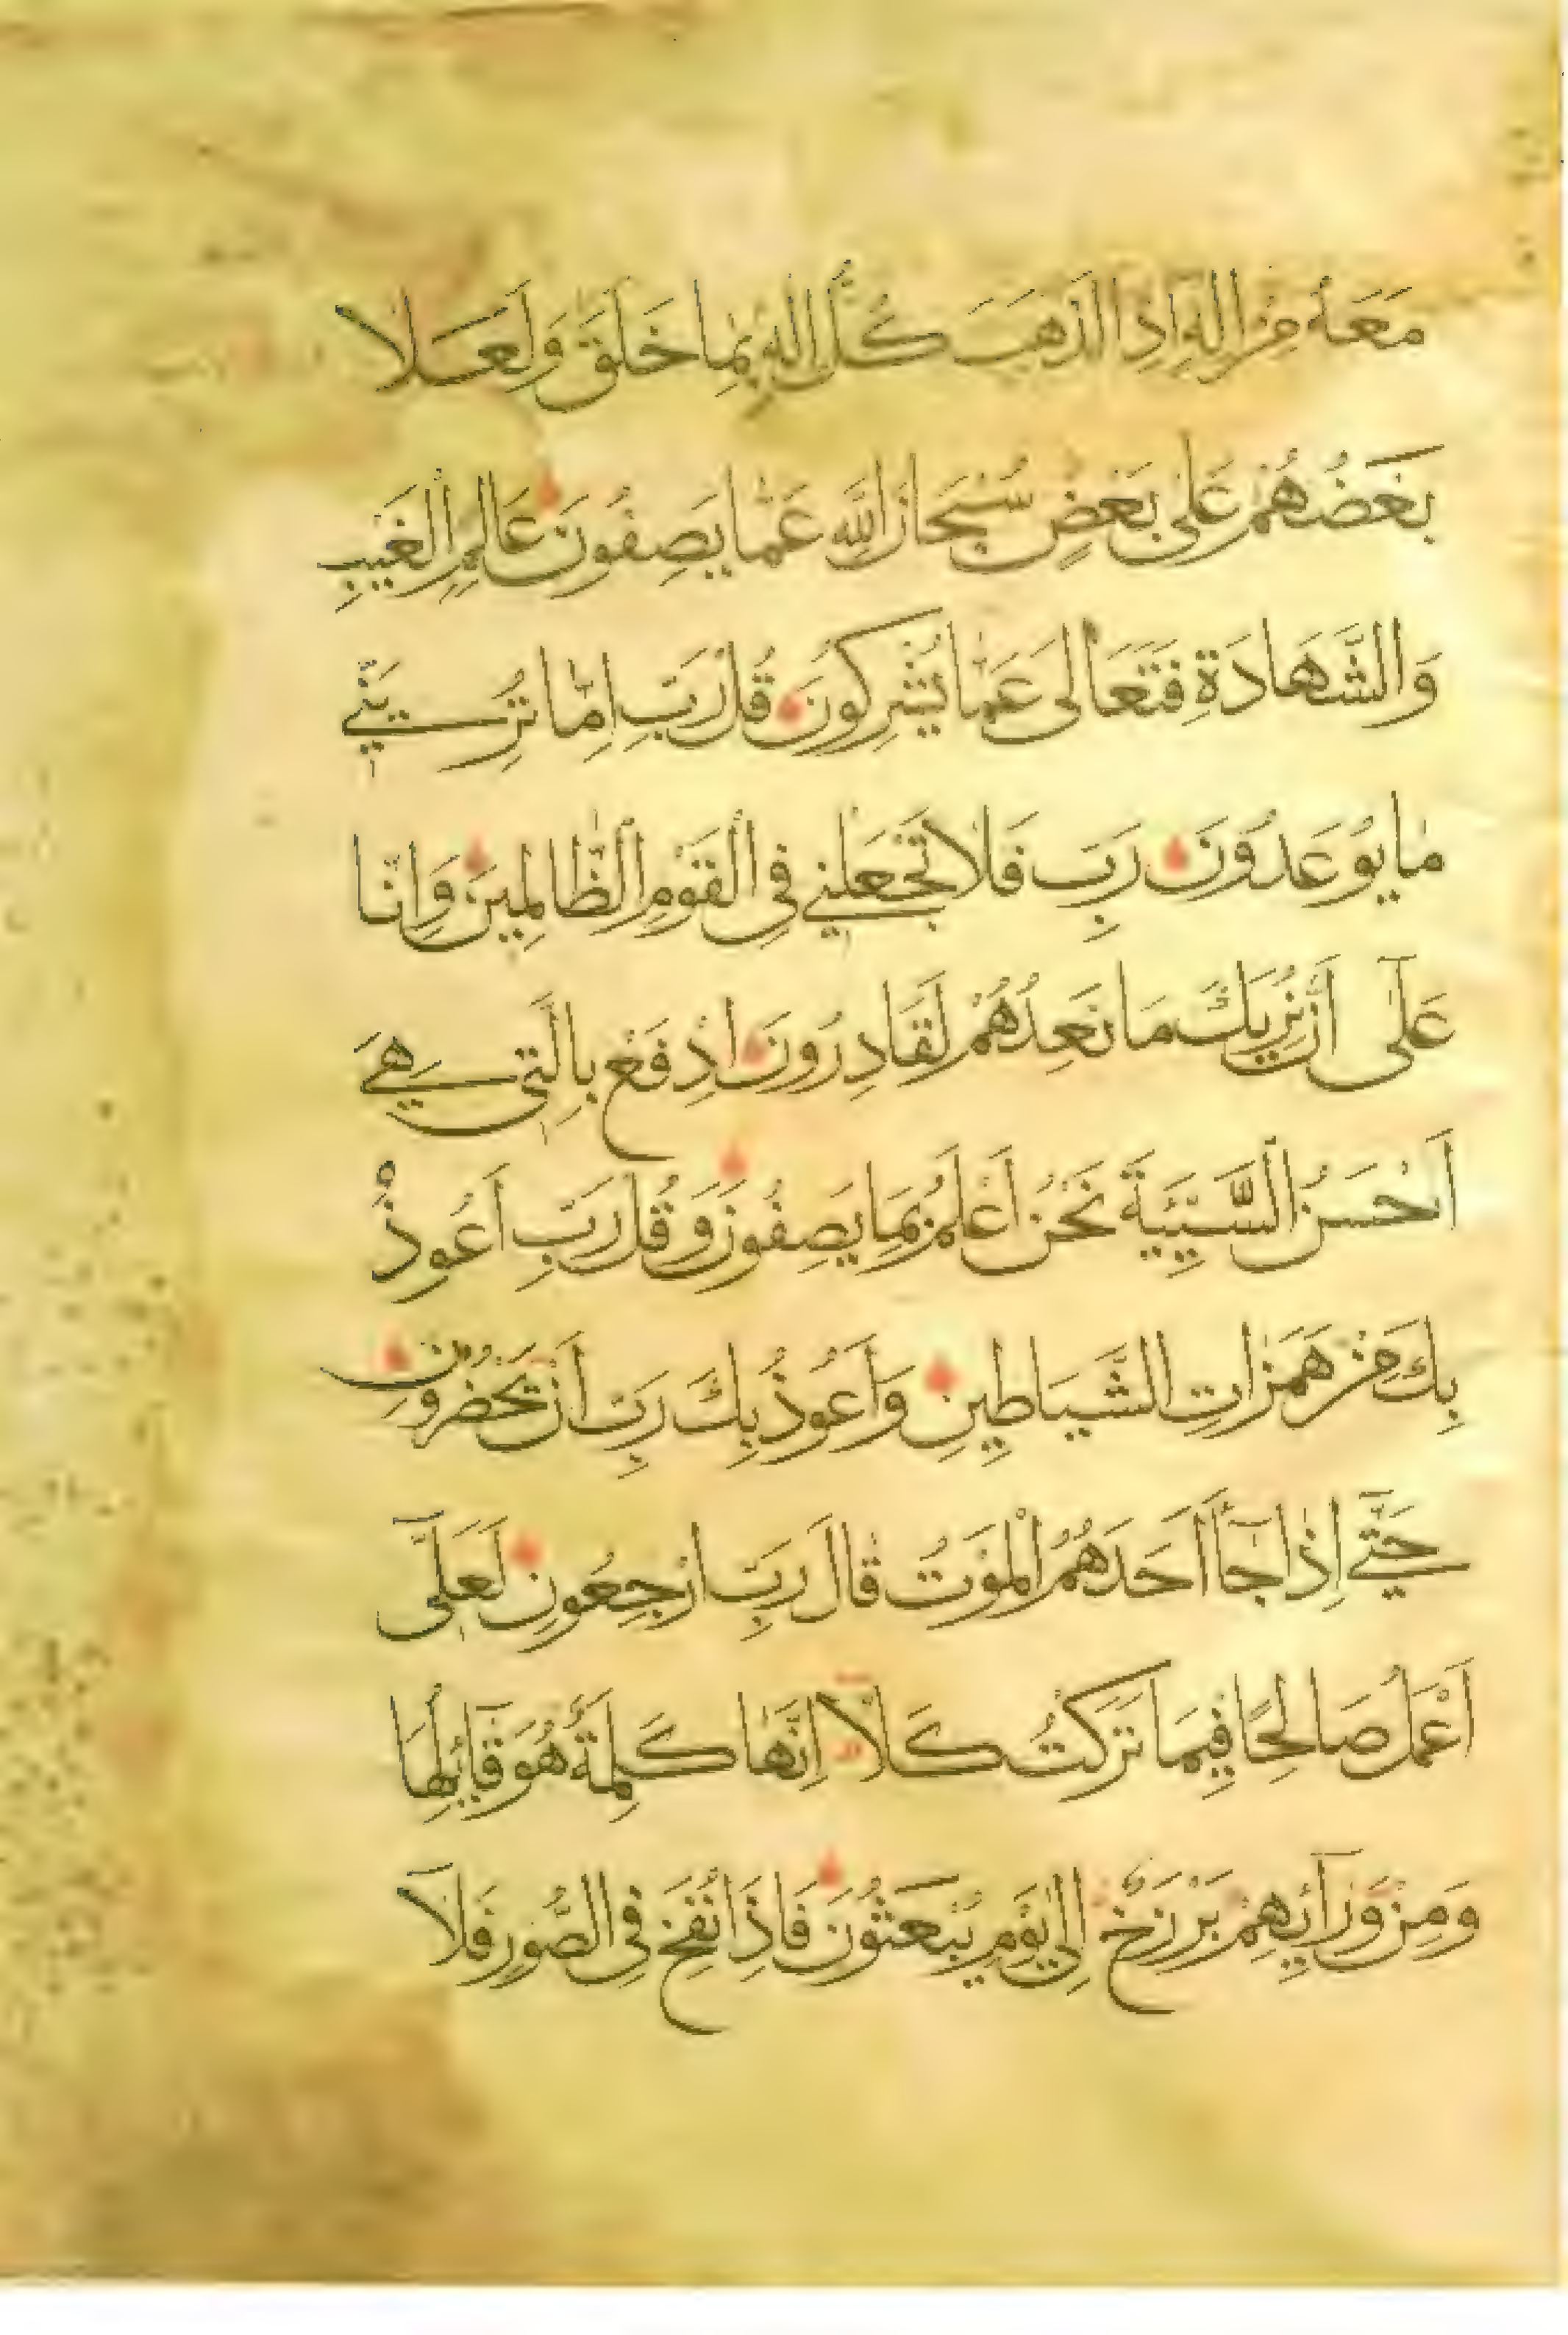 مَعَهُ مِنْ اِلٰهٍ اِذًا لَذَهَبَ كُلُّ اِلٰهٍ بِمَا خَلَقَ وَلَعَلَا
بَعْضُهُمْ عَلٰى بَعْضٍ سُبْحَانَ اللّٰهِ عَمَّا يَصِفُونَ عَالِمِ الْغَيْبِ
وَالشَّهَادَةِ فَتَعَالٰى عَمَّا يُشْرِكُونَ قُلْ رَبِّ اِمَّا تُرِيَنِّي
مَا يُوعَدُونَ رَبِّ فَلَا تَجْعَلْنِي فِي الْقَوْمِ الظَّالِمِينَ وَاِنَّا
عَلٰٓى اَنْ نُرِيَكَ مَا نَعِدُهُمْ لَقَادِرُونَ اِدْفَعْ بِالَّتِي هِيَ
اَحْسَنُ السَّيِّئَةَ نَحْنُ اَعْلَمُ بِمَا يَصِفُونَ وَقُلْ رَبِّ اَعُوذُ
بِكَ مِنْ هَمَزَاتِ الشَّيَاطِينِ وَاَعُوذُ بِكَ رَبِّ اَنْ يَحْضُرُونِ
حَتّٰٓى اِذَا جَآءَ اَحَدَهُمُ الْمَوْتُ قَالَ رَبِّ ارْجِعُونِ لَعَلِّٓي
اَعْمَلُ صَالِحًا فِيمَا تَرَكْتُ كَلَّا اِنَّهَا كَلِمَةٌ هُوَ قَآئِلُهَا
وَمِنْ وَرَآئِهِمْ بَرْزَخٌ اِلٰى يَوْمِ يُبْعَثُونَ فَاِذَا نُفِخَ فِي الصُّورِ فَلَآ